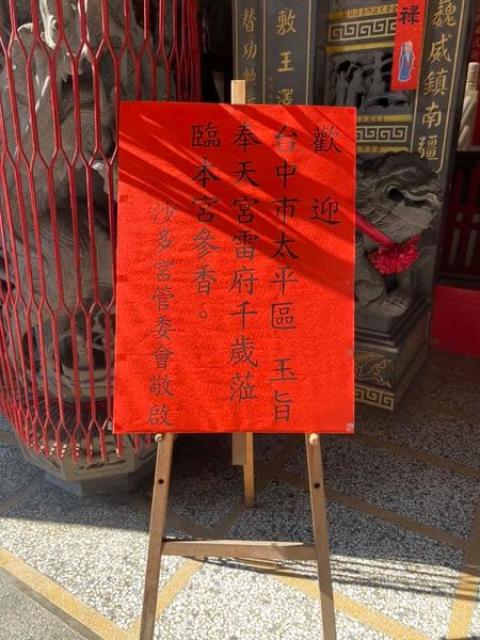 歡迎
台中市太平區 玉旨
奉天宮雷府千歲蒞
臨本宮參香。
沙多宮管委會敬啟
魏威鎮南疆
祿
敷王澤
替功勳